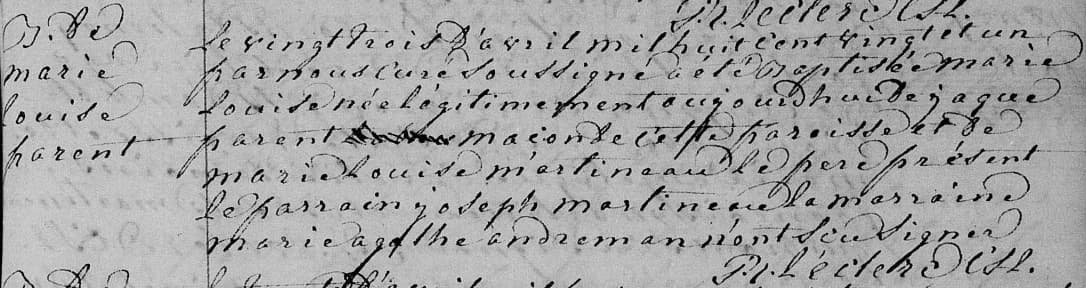 Pr. Leclerc Est.
B. de
marie
louise
parent
le vingt trois d'avril mil huit cent vingt et un
par nous curé soussigné a été Baptisée marie
louise née légitimement aujourdhui de jaque
parent maçon de cette paroisse et de
marie Louise martineau le pere présent
le parrain joseph martineau la marraine
marie agathe andreman n'ont sçu signer
Pr. Leclerc Est.